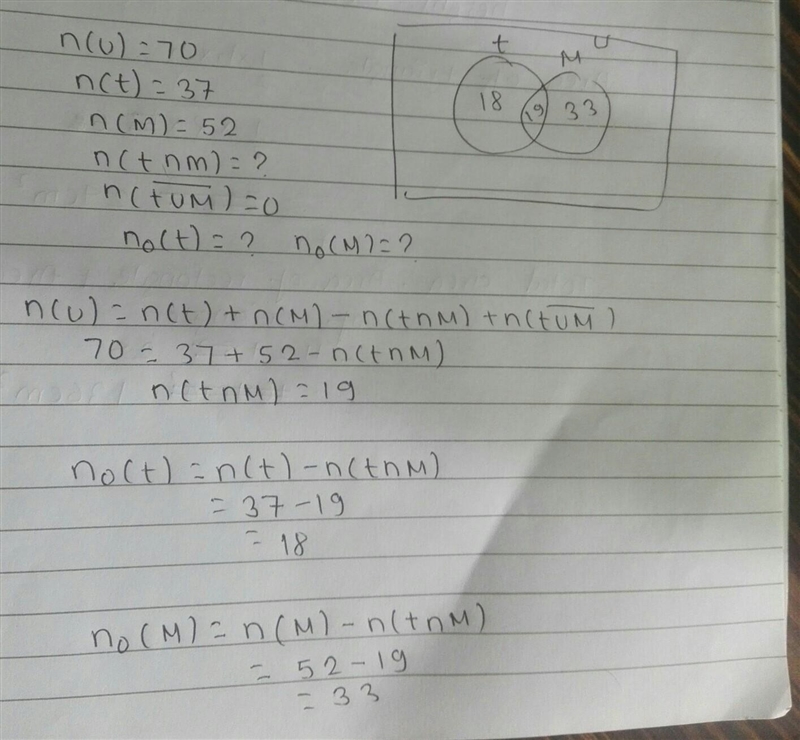 n(U) = 70
n(t) = 37
n(M) = 52
n(t∩M) = ?
n(t̅∪̅M̅) = 0
n₀(t) = ? n₀(M) = ?
t
M
U
18
19
33
n(U) = n(t) + n(M) - n(t∩M) + n(t̅∪̅M̅)
70 = 37 + 52 - n(t∩M)
n(t∩M) = 19
n₀(t) = n(t) - n(t∩M)
= 37 - 19
= 18
n₀(M) = n(M) - n(t∩M)
= 52 - 19
= 33